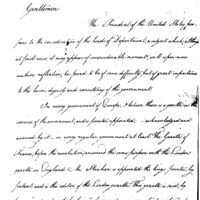 Gentlemen
The President of the United States
to the consideration of the heads of Department, a subject which, altho
at first view, it may appear of inconsiderable moment, will upon more
mature reflection, be found to be of some difficulty, but of great importance
to the honor, dignity and consistency of the government.
In every government of Europe, I believe there is a gazette in the
service of the government, and a printer appointed acknowledged and
avowed by it — in every regular government at least. The Gazette of
France, before the revolution, answered the same purpose with the London
gazette in England. Mr Strahan is appointed the kings printer, by
patent and is the editor of the London gazette. This gazette is said, by